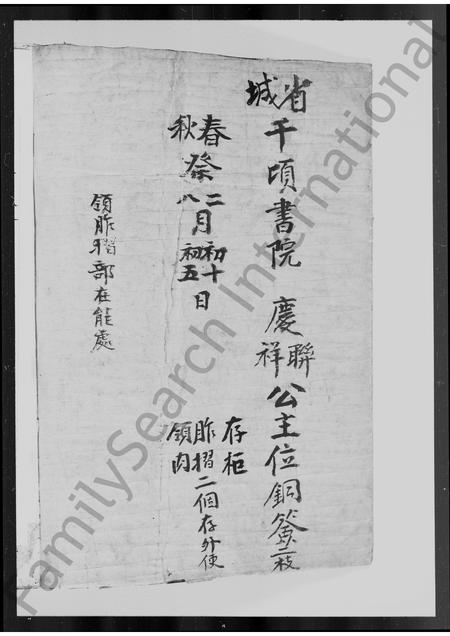 省城千頃書院 慶聯祥公主位銅簽二枝
春秋祭二八月初十初五日 存柜領胙肉摺二個存外便
領胙摺部在能處
FamilySearch International